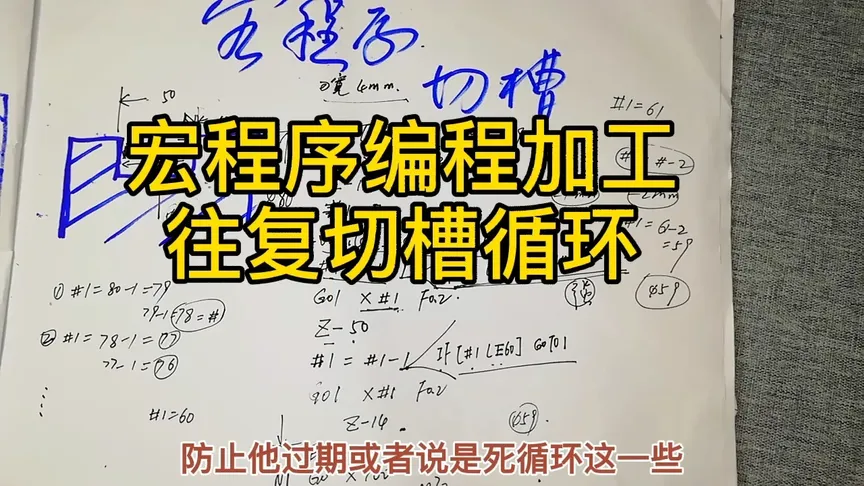 宏程序
刀宽 4mm.
切槽
50
#1=61
宏程序编程加工
往复切槽循环
#-2
#1=61-2
=59
φ59
① #1=80-1=79
79-1=78=#
② #1=78-1=77
77-1=76
#1=60
G01 X#1 F0.2.
Z-50
#1=#1-1
IF[#1 LE60] GOTO1
G01 X#1 F0.2
Z-14.
φ59.
防止他过期或者说是死循环这一些